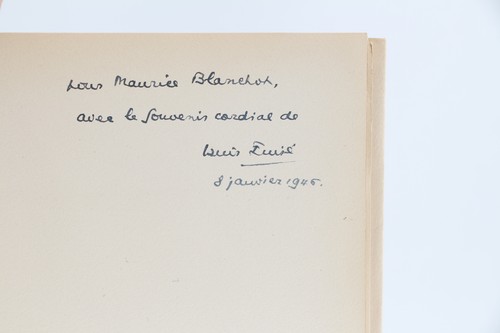 pour Maurice Blanchot,
avec le souvenir cordial de
Louis Émié
8 janvier 1946.